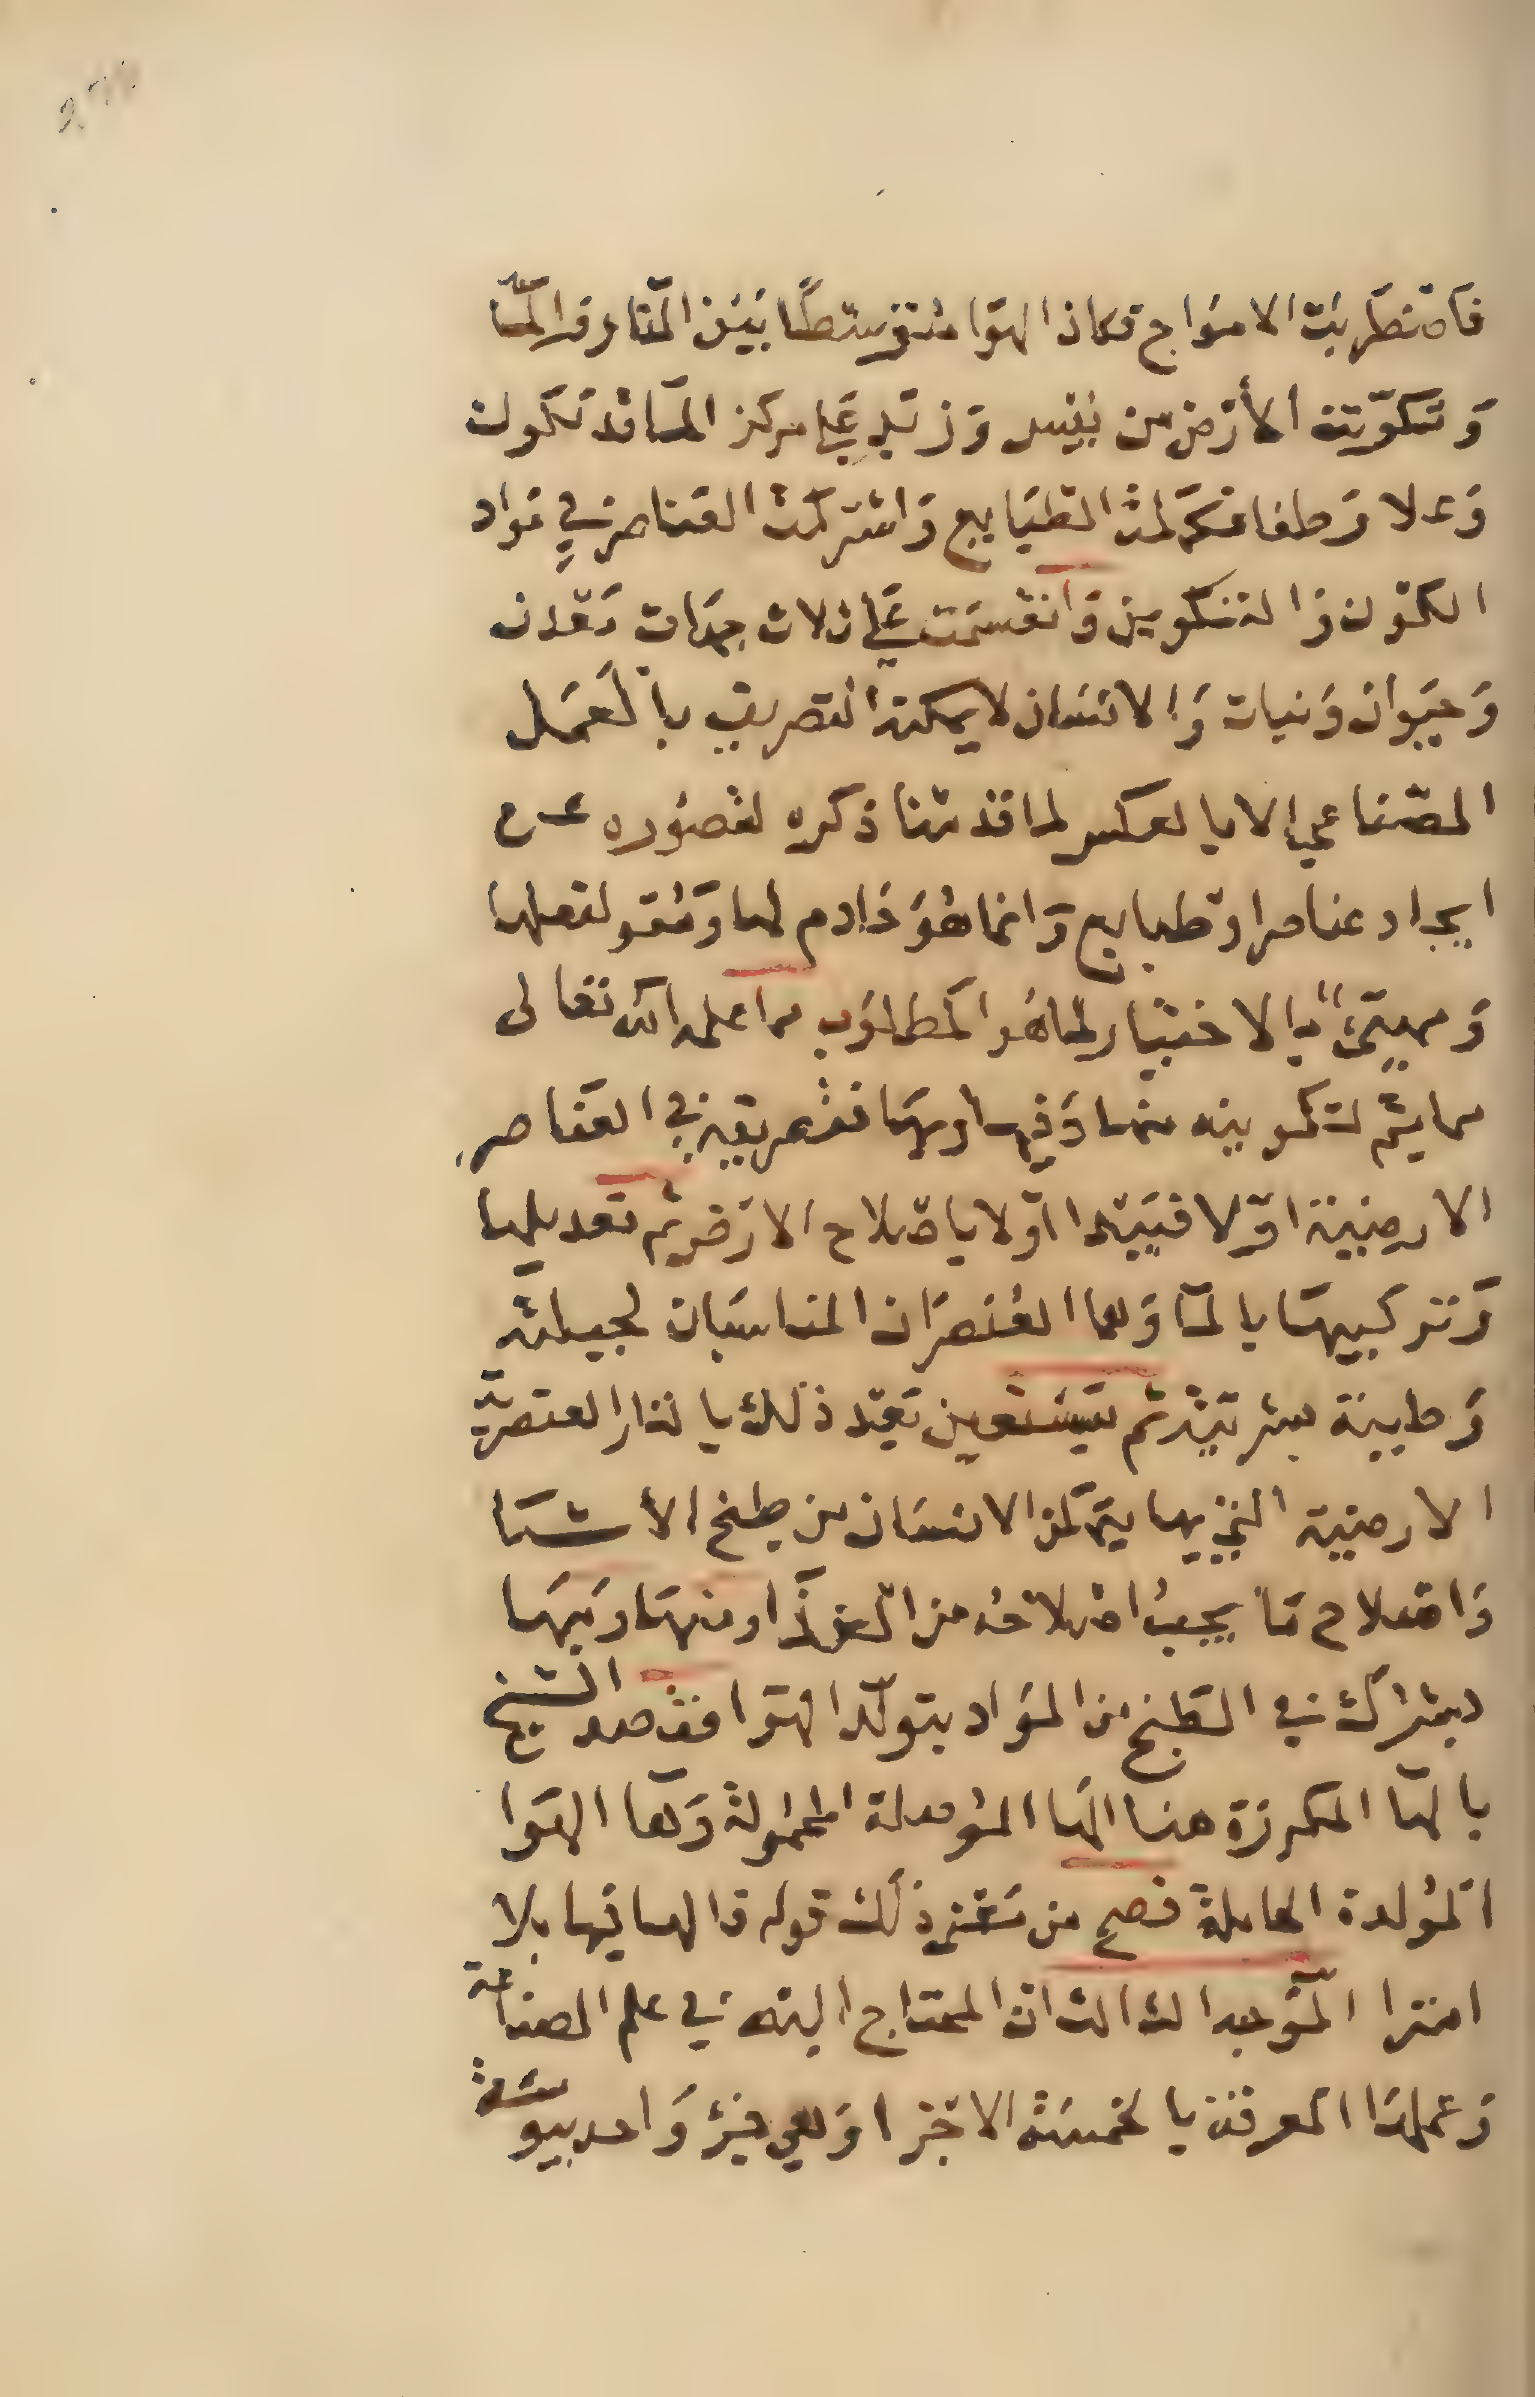 فاضطربت الامواج فكان الهوا متوسطًا بين النار والما
وتكونت الأرض من يبس وزبد على مركز الما فتكون
وعلا وطفا فكملت الطبايع واشتركت العناصر في مواد
الكون والتكوين وانقسمت على ثلاث جهات معدن
وحيوان ونبات والانسان لا يمكنه التصريف بالعمل
الصناعي الا بالعكس لما قدمنا ذكره لقصوره عن
ايجاد عناصر او طبايع وانما هو خادم لها ومقو لفعلها
ومهيئ بالاختيار لما هو المطلوب مما علمه الله تعالى
مما يتم تكوينه منها وفيها وبها فتصريفه في العناصر
الارضية اولا فيبتدا اولا باصلاح الارض ثم تعديلها
وتركيبها بالما وهما العنصران المناسبان لجبلته
وطينة بشريته ثم يستعين بعد ذلك بالنار العنصرية
الارضية التي بها يتمكن الانسان من طبخ الأشيا
واصلاح ما يجب اصلاحه من الغذا ومنها وبها
يشترك في الطبخ من المواد يتولد الهوا فقصد الشيخ
بالها المكررة هنا الها الموصلة المحمولة وها الهوا
المولدة الحاملة فصح من معنى ذلك قوله والها فيها بلا
امترا الوجه الثالث ان المحتاج اليه في علم الصناعة
وعملها المعرفة بالخمسة الاجزا وهي جزؤ واحد بيوسة